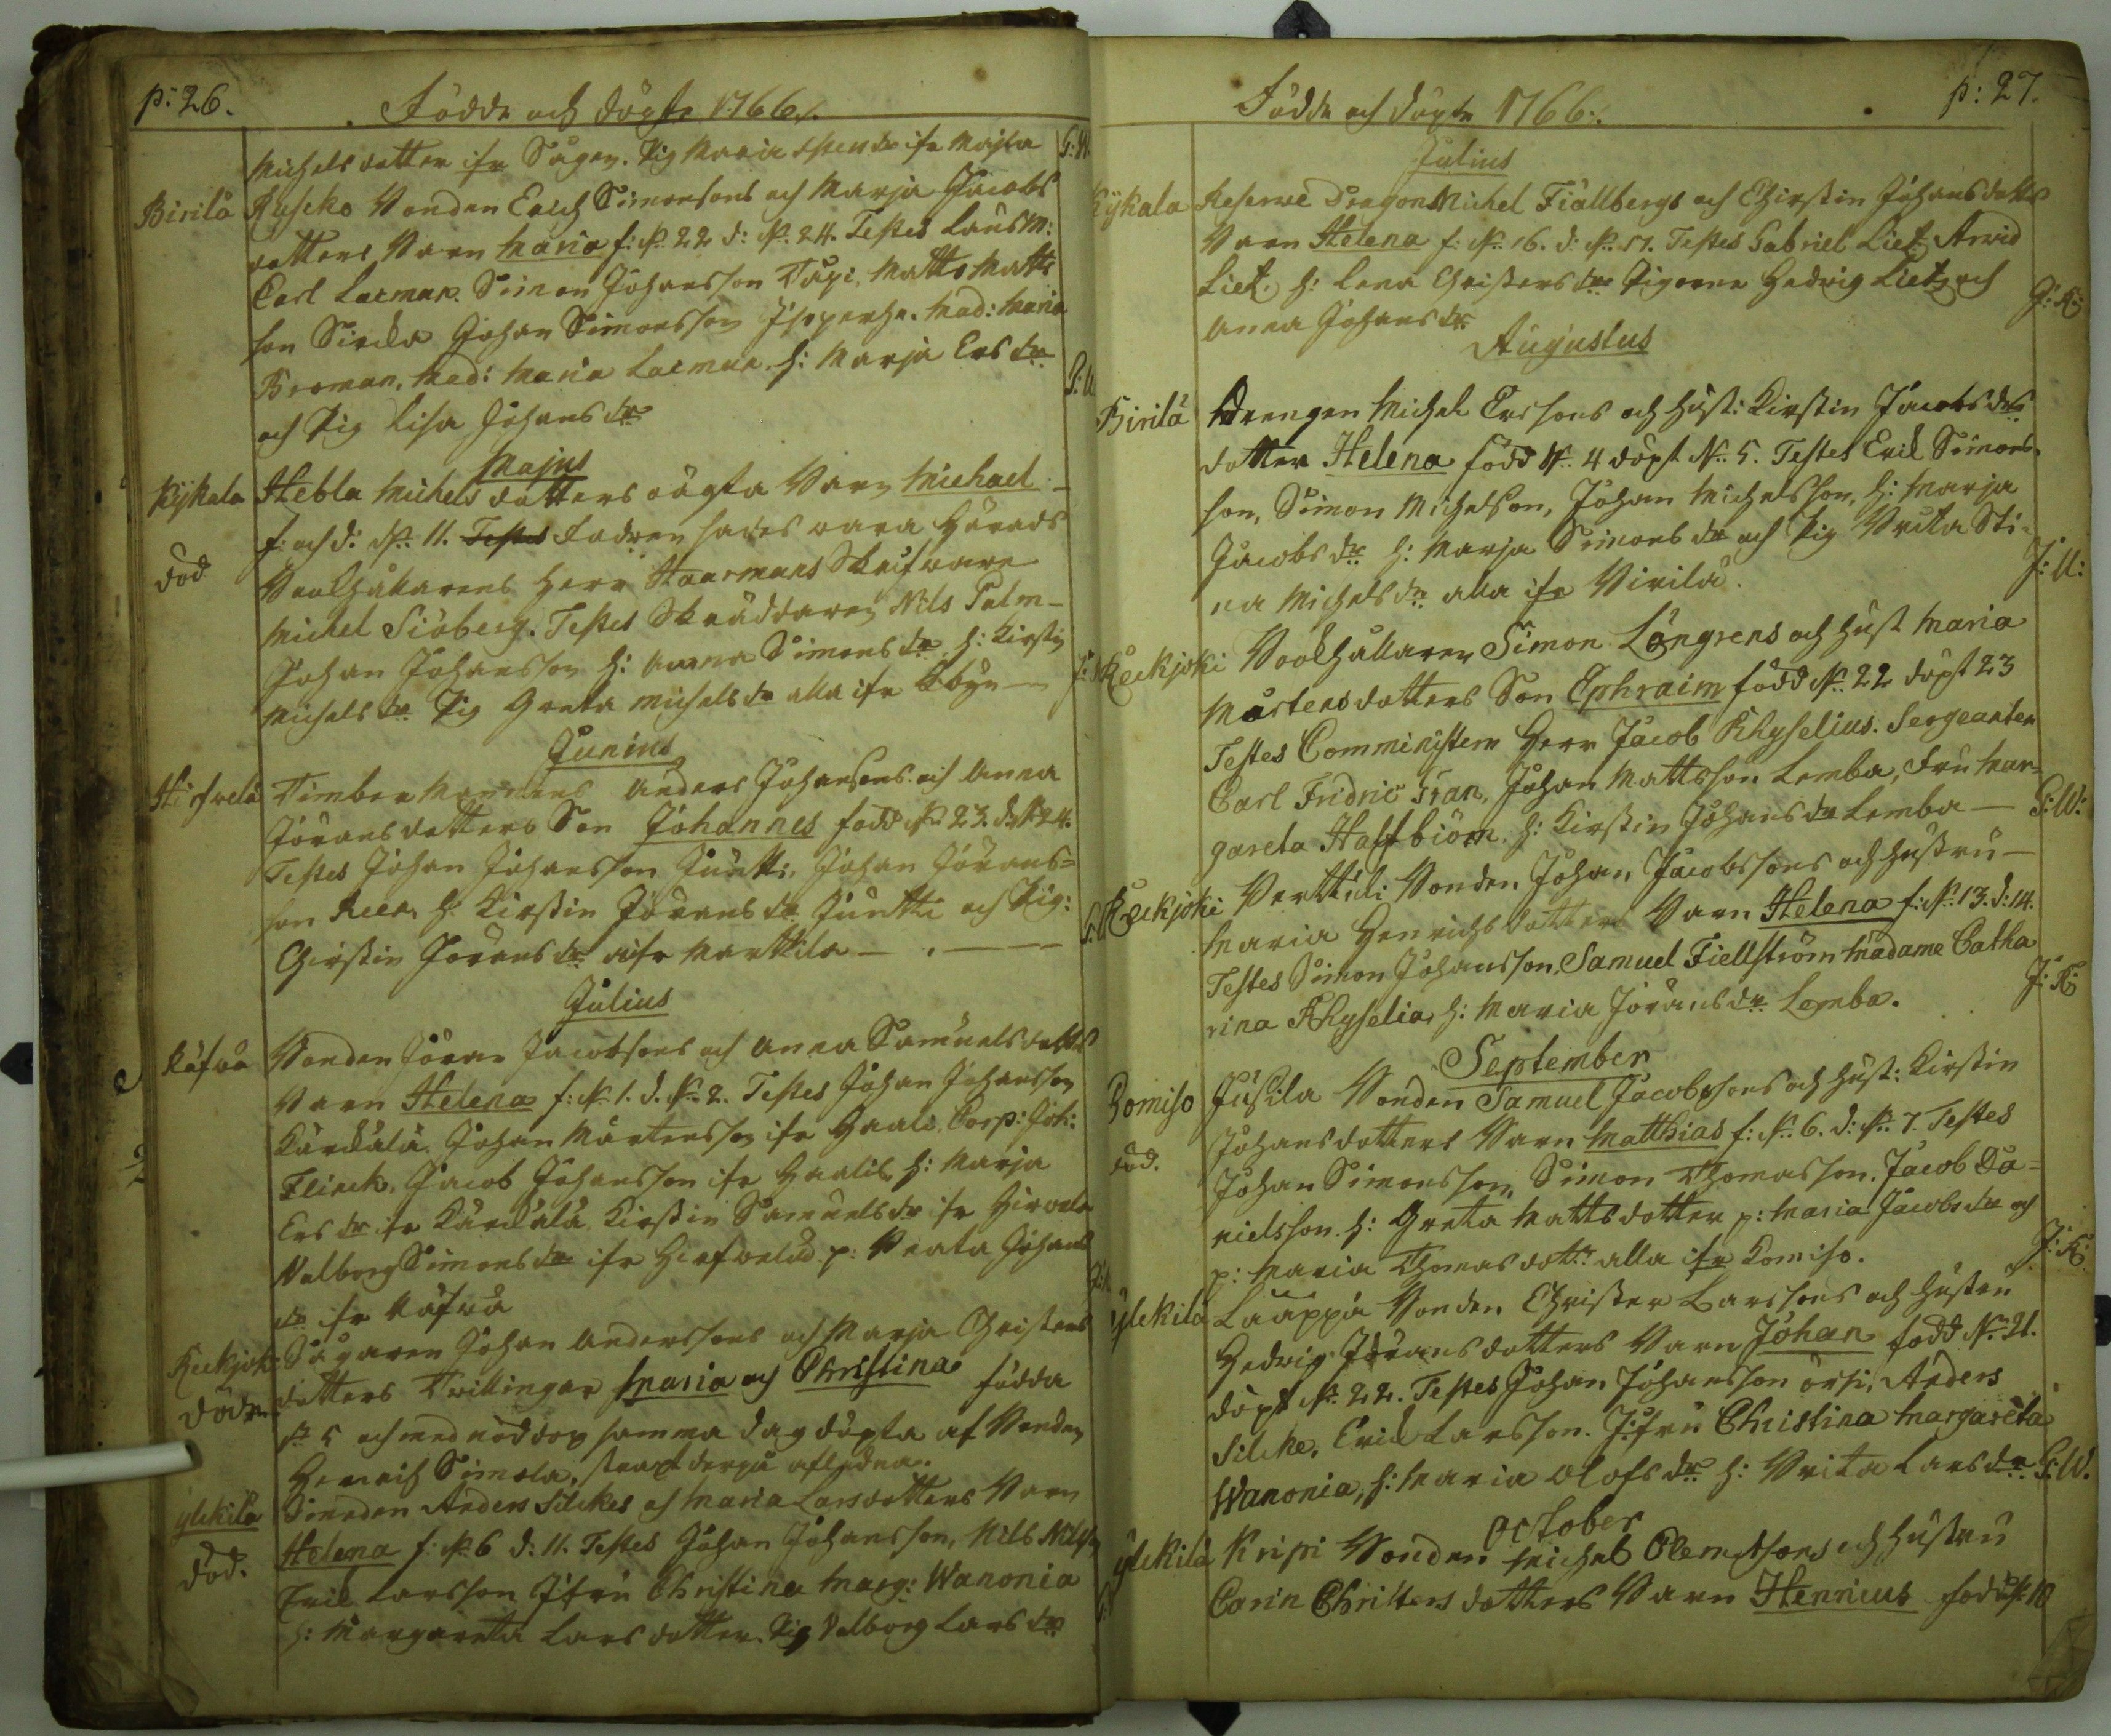 p: 26.
Födde och döpte 1766.
Michelsdotter ifr Sugen. Pig Maria dr ifr
G: W.
Birilä Ruscko Bonden Erich Simonsons och Marja Jacobs
dotters Barn Maria f: d. 22 d: d. 24. Testes Länsm:
Carl Lacman. Simon Johansson Tupi, Matts Matts
son Sirola Johan Simonsson Mad: Maria
Broman. Mad: Maria Lacman. h: Marja Ers dr
och Pig Lisa Johans dr
Majus
Kykala Hebla Michels dotters oägta Barn Michael
död
f: och d: d. 11. Testes Fadren sades vara Härads
Herr Haarmans Skrifvare
Michel Siöberg. Testes Skräddaren Nils Palm
Johan Johansson h: Anna Simons dr. h: Kirstin
Michels dr Pig Greta Michels dr alla ifr
Junius
Hirfvelä Timberman Anders Johansons och Anna
Jörans dotters Son Johannes född d. 23 d. 24.
Testes Johan Johansson Juntti, Johan Jörans=
son h: Kirstin Jörans dr Juntti och Pig:
Christin Jörans dr ifr Marttila
Julius
Räfvä Bonden Göran Jacobsons och Anna Samuelsdotters
Barn Helena f: d. 1. d. d. 2. Testes Johan Johansson
Kärkälä. Johan Mårtensson ifr Haali. Corp: Joh:
Flinck. Jacob Johansson ifr Haali, h: Marja
Ers dr ifr Kärkälä, Kirstin Samuels dr ifr Hirvela
Valborg Simons dr ifr Hirfvelä. p: Beata Johans
dr ifr Räfvä
Keckjoki Sågaren Johan Anderssons och Marja Christers
döde dotters Twillingar Maria och Christina födda
d. 5 och med nöddop samma dag döpta af Bonden
Henrich Simola. straxt derpå afledna.
ylikilä Smeden Anders Silckes och Maria Larsdotters Barn
död.
Helena f: d. 6 d: 11. Testes Johan Johansson, Nils Nilsson
Erik Larsson Jfru Christina Marg: Wanonia
h: Margareta Larsdotter. Pig Valborg Lars dr
p: 27.
Födde och döpte 1766.
Julius
Kykala Reserve Dragon Michel Fiällbergs och Christin Johansdotters
Barn Helena f: d. 16. d: d. 17. Testes Gabriel Liet, Arvid
Liet. h: Lena Christers dr Pigorne Hedvig Liet och
Anna Johans dr
J: K:
Augustus
Birilä Drengen Michel Erssons och Hust: Kirstin Jacobs drs
dotter Helena född d. 4 döpt d. 5. Testes Erik Simons
son, Simon Michelson, Johan Michelsson, h: Marja
Jacobs dr h: Marja Simons dr och Pig Brita Sti=
na Michels dr alla ifr Birilä.
Keckjoki Bookhållaren Simon Löngrens och Hust Maria
Mårtensdotters Son Ephraim född d. 22 döpt 23
Testes Comministern Herr Jacob Rhyselius. Sergeanten
Carl Fridric Tran, Johan Mattsson Lemba, Fru Mar=
gareta Halfbiörn. h: Kirstin Johans dr Lemba
G: W:
Keckjoki Perttuli Bonden Johan Jacobssons och Hustru
Maria Henrichsdotters Barn Helena f: d. 13. d: 14.
Testes Simon Johansson, Samuel Fiellström Madame Catha
rina Rhyselia, h: Maria Jörans dr Lemba.
J: K:
September
Somiso Jussila Bonden Samuel Jacobssons och Hust: Kirstin
död.
Johansdotters Barn Matthias f: d. 6. d: d. 7. Testes
Johan Simonsson, Simon Thomasson. Jacob Da=
nielsson. h: Greta Mattsdotter p: Maria Jacobs dr och
p: Maria Thomasdotr alla ifr Somiso.
J: K:
ylikilä Laappa Bonden Christer Larssons och Hustru
Hedvig Jöransdotters Barn Johan född d. 21.
döpt d. 22. Testes Johan Johansson örsi, Anders
Silcke, Erik Larsson. Jfru Christina Margareta
Wanonia, h: Maria Olofs dr h: Brita Lars dr
G: W.
October
ylikilä Knipi Bonden Michel Clemetsons och Hustru
Carin Christers dotters Barn Henricus född d. 18